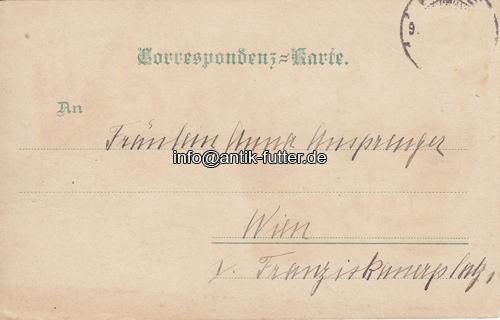 9.
Correspondenz-Karte.
An
Fräulein Anna Ansprenger
info@antik-futter.de
Wien
I. Franziskanerplatz,